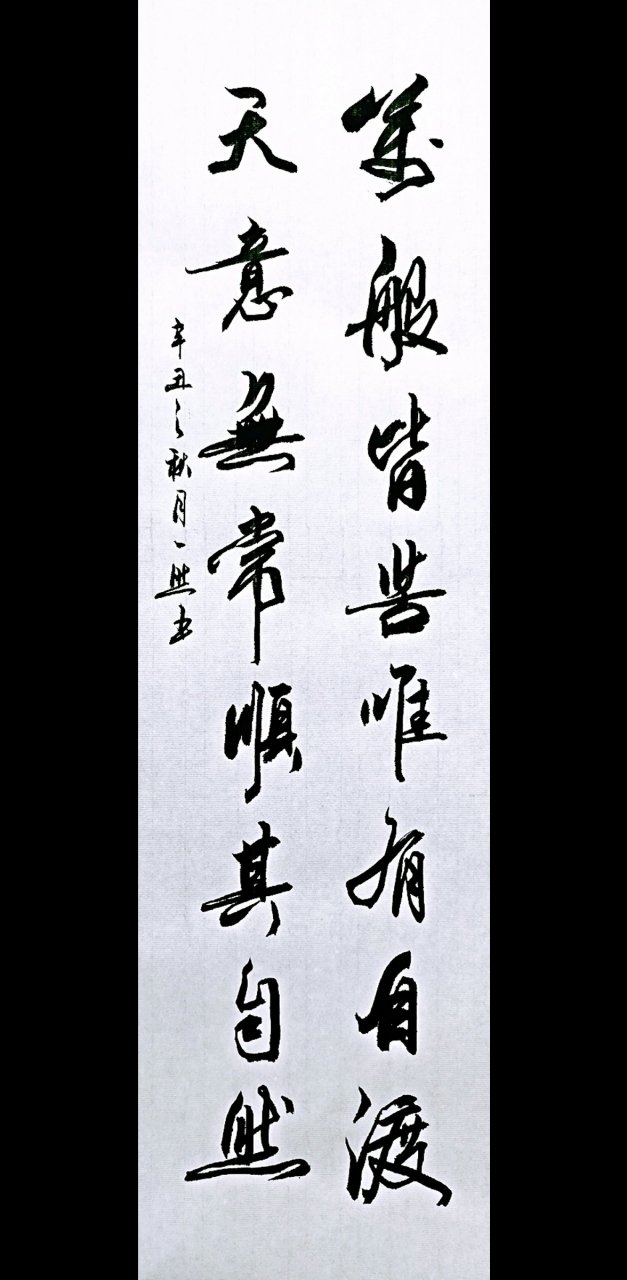 萬般皆苦唯有自渡
天意無常順其自然
辛丑之秋月一然书